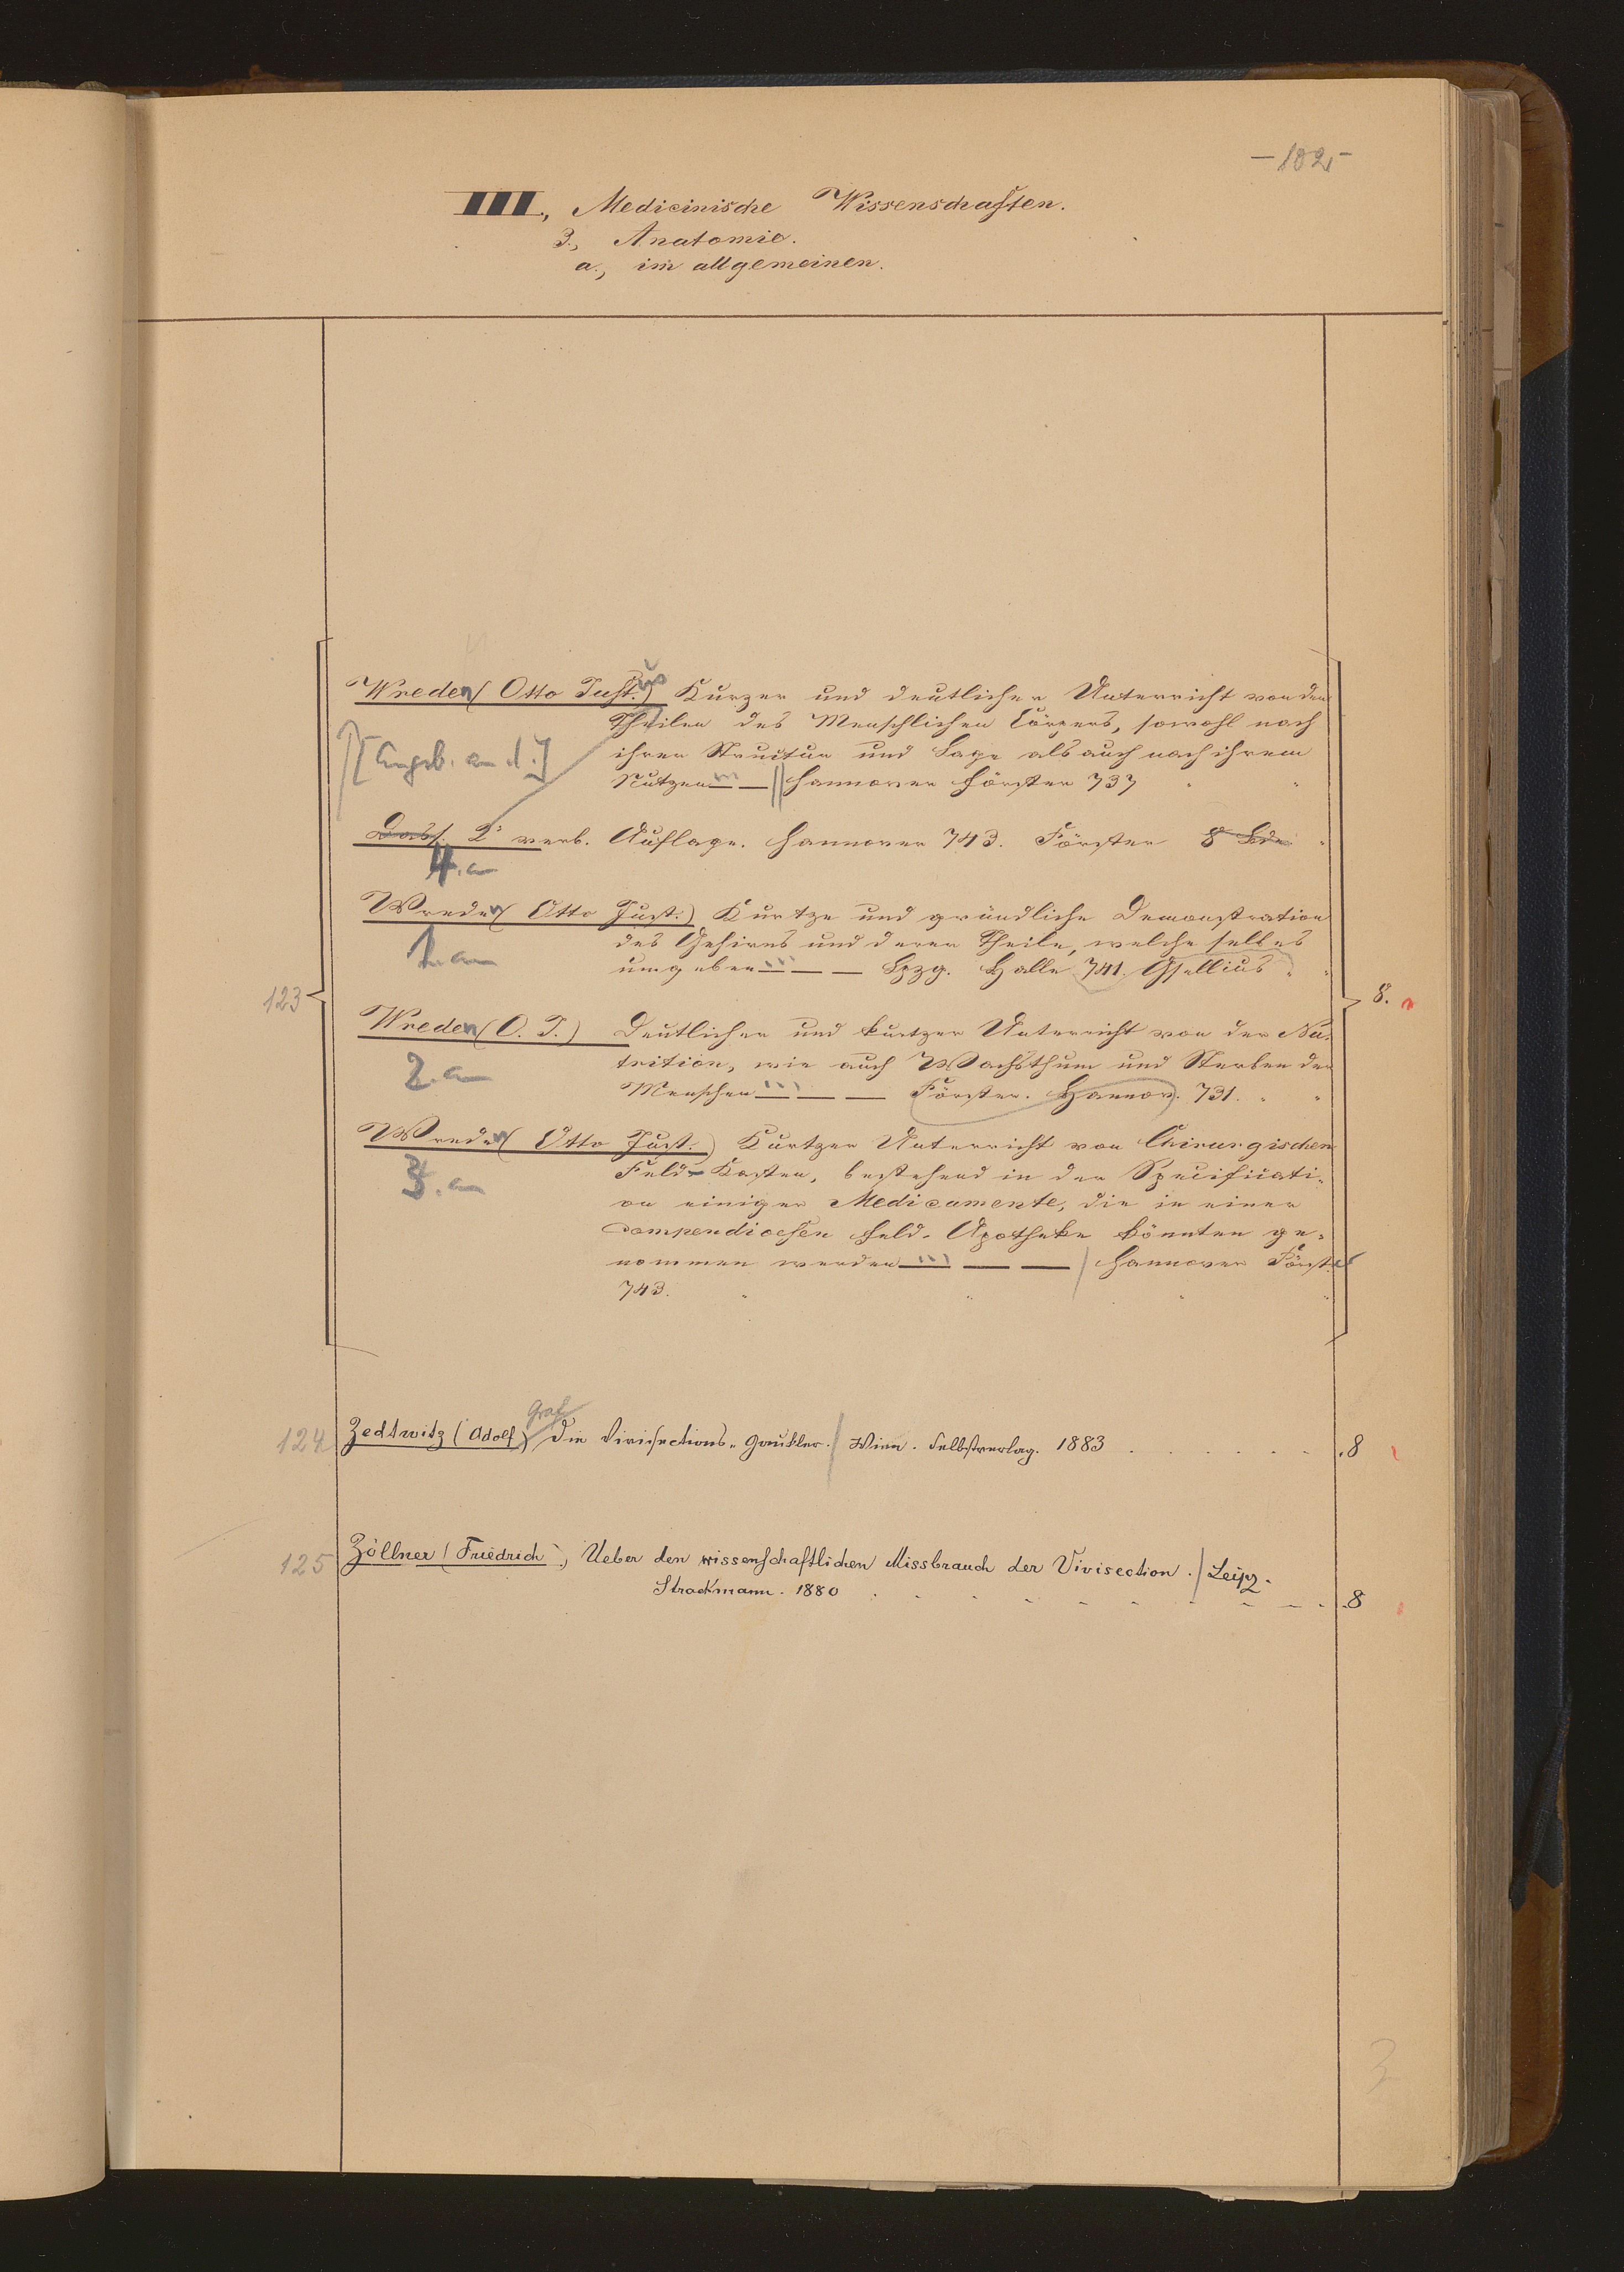 – 102 –
III., Medicinische Wissenschaften.
3., Anatomie.
a., im allgemeinen.
Wreden (Otto Just.us) Kurzer und deutlicher Unterricht von den
Theilen des Menschlichen Cörpers, sowohl nach
[Angeb. an d.] ihrer Structur und Lage als auch nach ihrem
Nutzen ... — || Hannover Förster 737 " "
Dass. 2e verb. Auflage. Hannover 743. Förster 8 "
4. an
Wreden (Otto Just.) Kurtze und gründliche Demonstration
des Gehirns und derer Theile, welche selbes
1. an umgeben ... — — Lpzg. Halle 741. Gsellius " "
123 8.
Wreden (O. J.) Deutlicher und kurtzer Unterricht von der Nu-
2. an trition, wie auch Wachsthum und Sterben der
Menschen ... — — Förster. Hannov. 731. " "
Wreden (Otto Just.) Kurtzer Unterricht von Chirurgischen
3. an Feld-Kasten, bestehend in der Specificati-
on einiger Medicamente, die in einer
compendioesen Feld-Apotheke könnten ge-
nommen werden ... — — / Hannover Först.er
743. " " " "
Graf
124 Zedtwitz (Adolf) Die Vivisections-Gaukler. / Wien. Selbstverlag. 1883 . . . . . . . 8
125 Zöllner (Friedrich), Ueber den wissenschaftlichen Missbrauch der Vivisection. / Leipz.
Strackmann. 1880 . . . . . . . . . 8
3